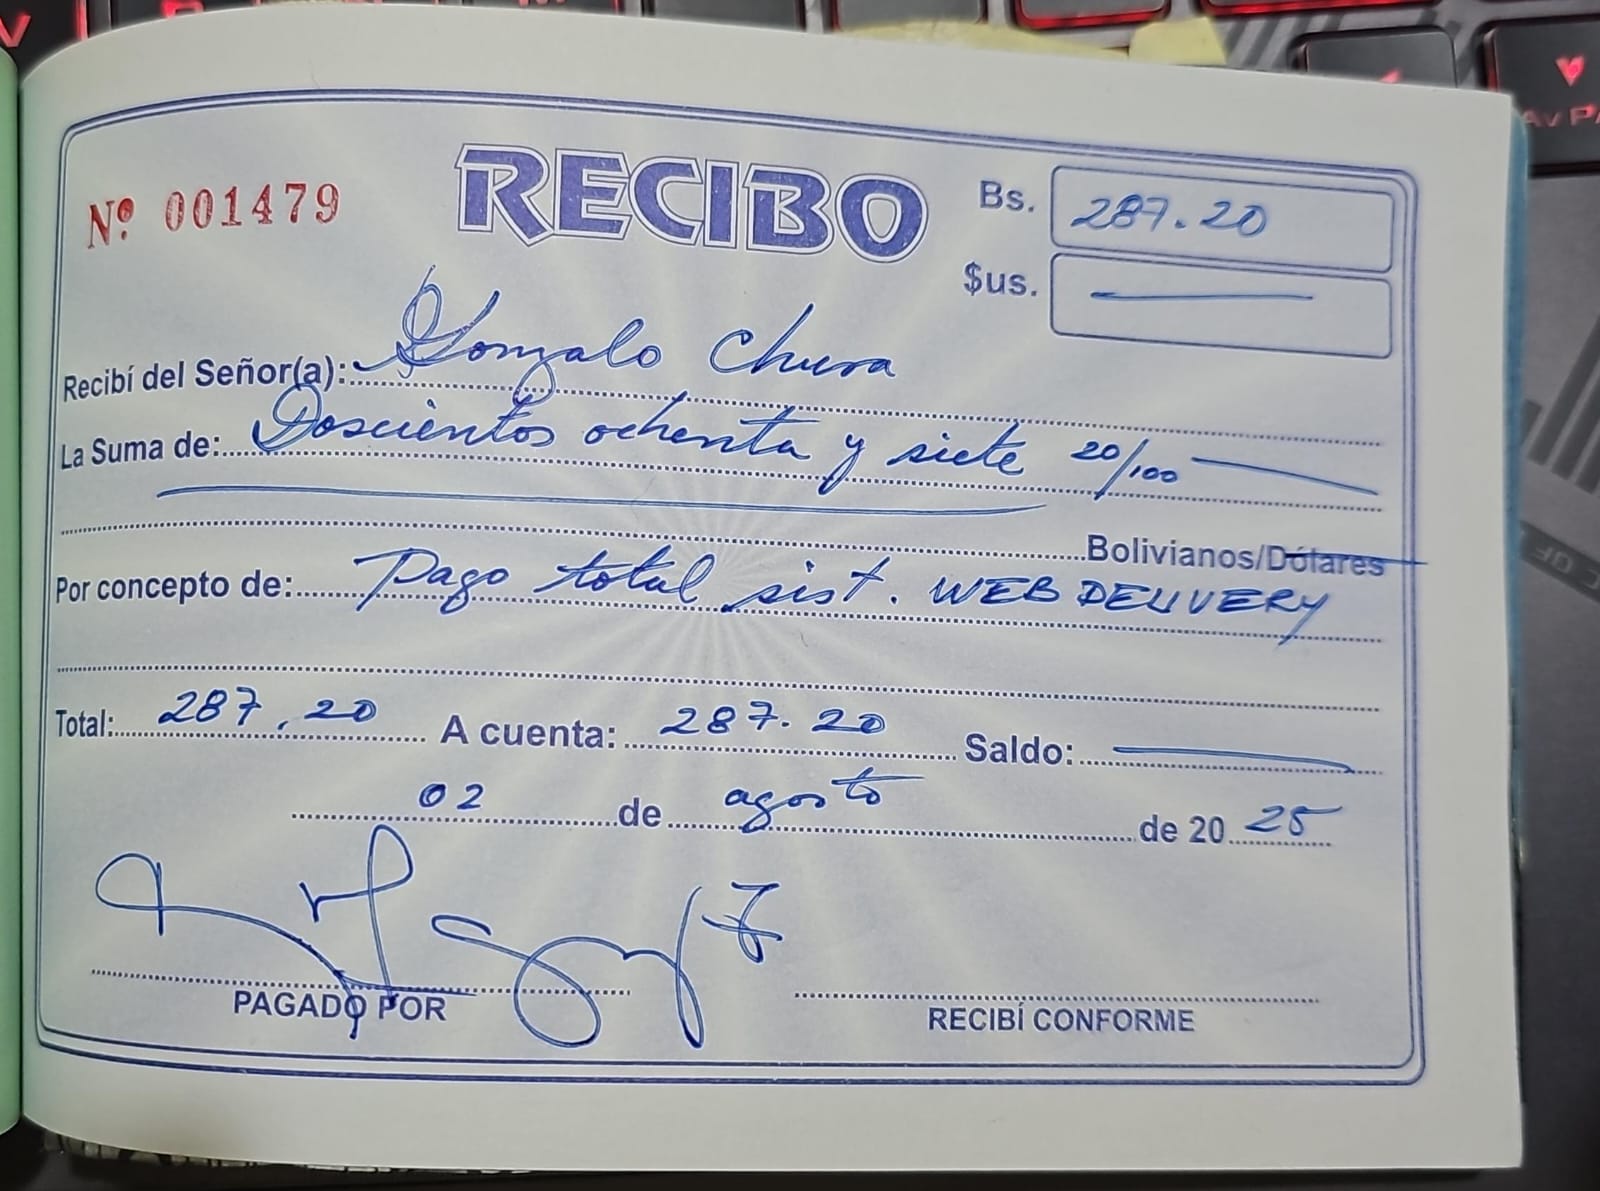 Nº 001479
RECIBO
Bs. 287.20
$us.
Recibí del Señor(a): Gonzalo Chura
La Suma de: Doscientos ochenta y siete 20/100
Bolivianos/Dólares
Por concepto de: Pago total sist. WEB DELIVERY
Total: 287.20 A cuenta: 287.20 Saldo:
02 de agosto de 20 25
PAGADO POR
RECIBÍ CONFORME